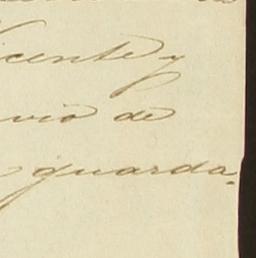 icente y
vió de
guarda.